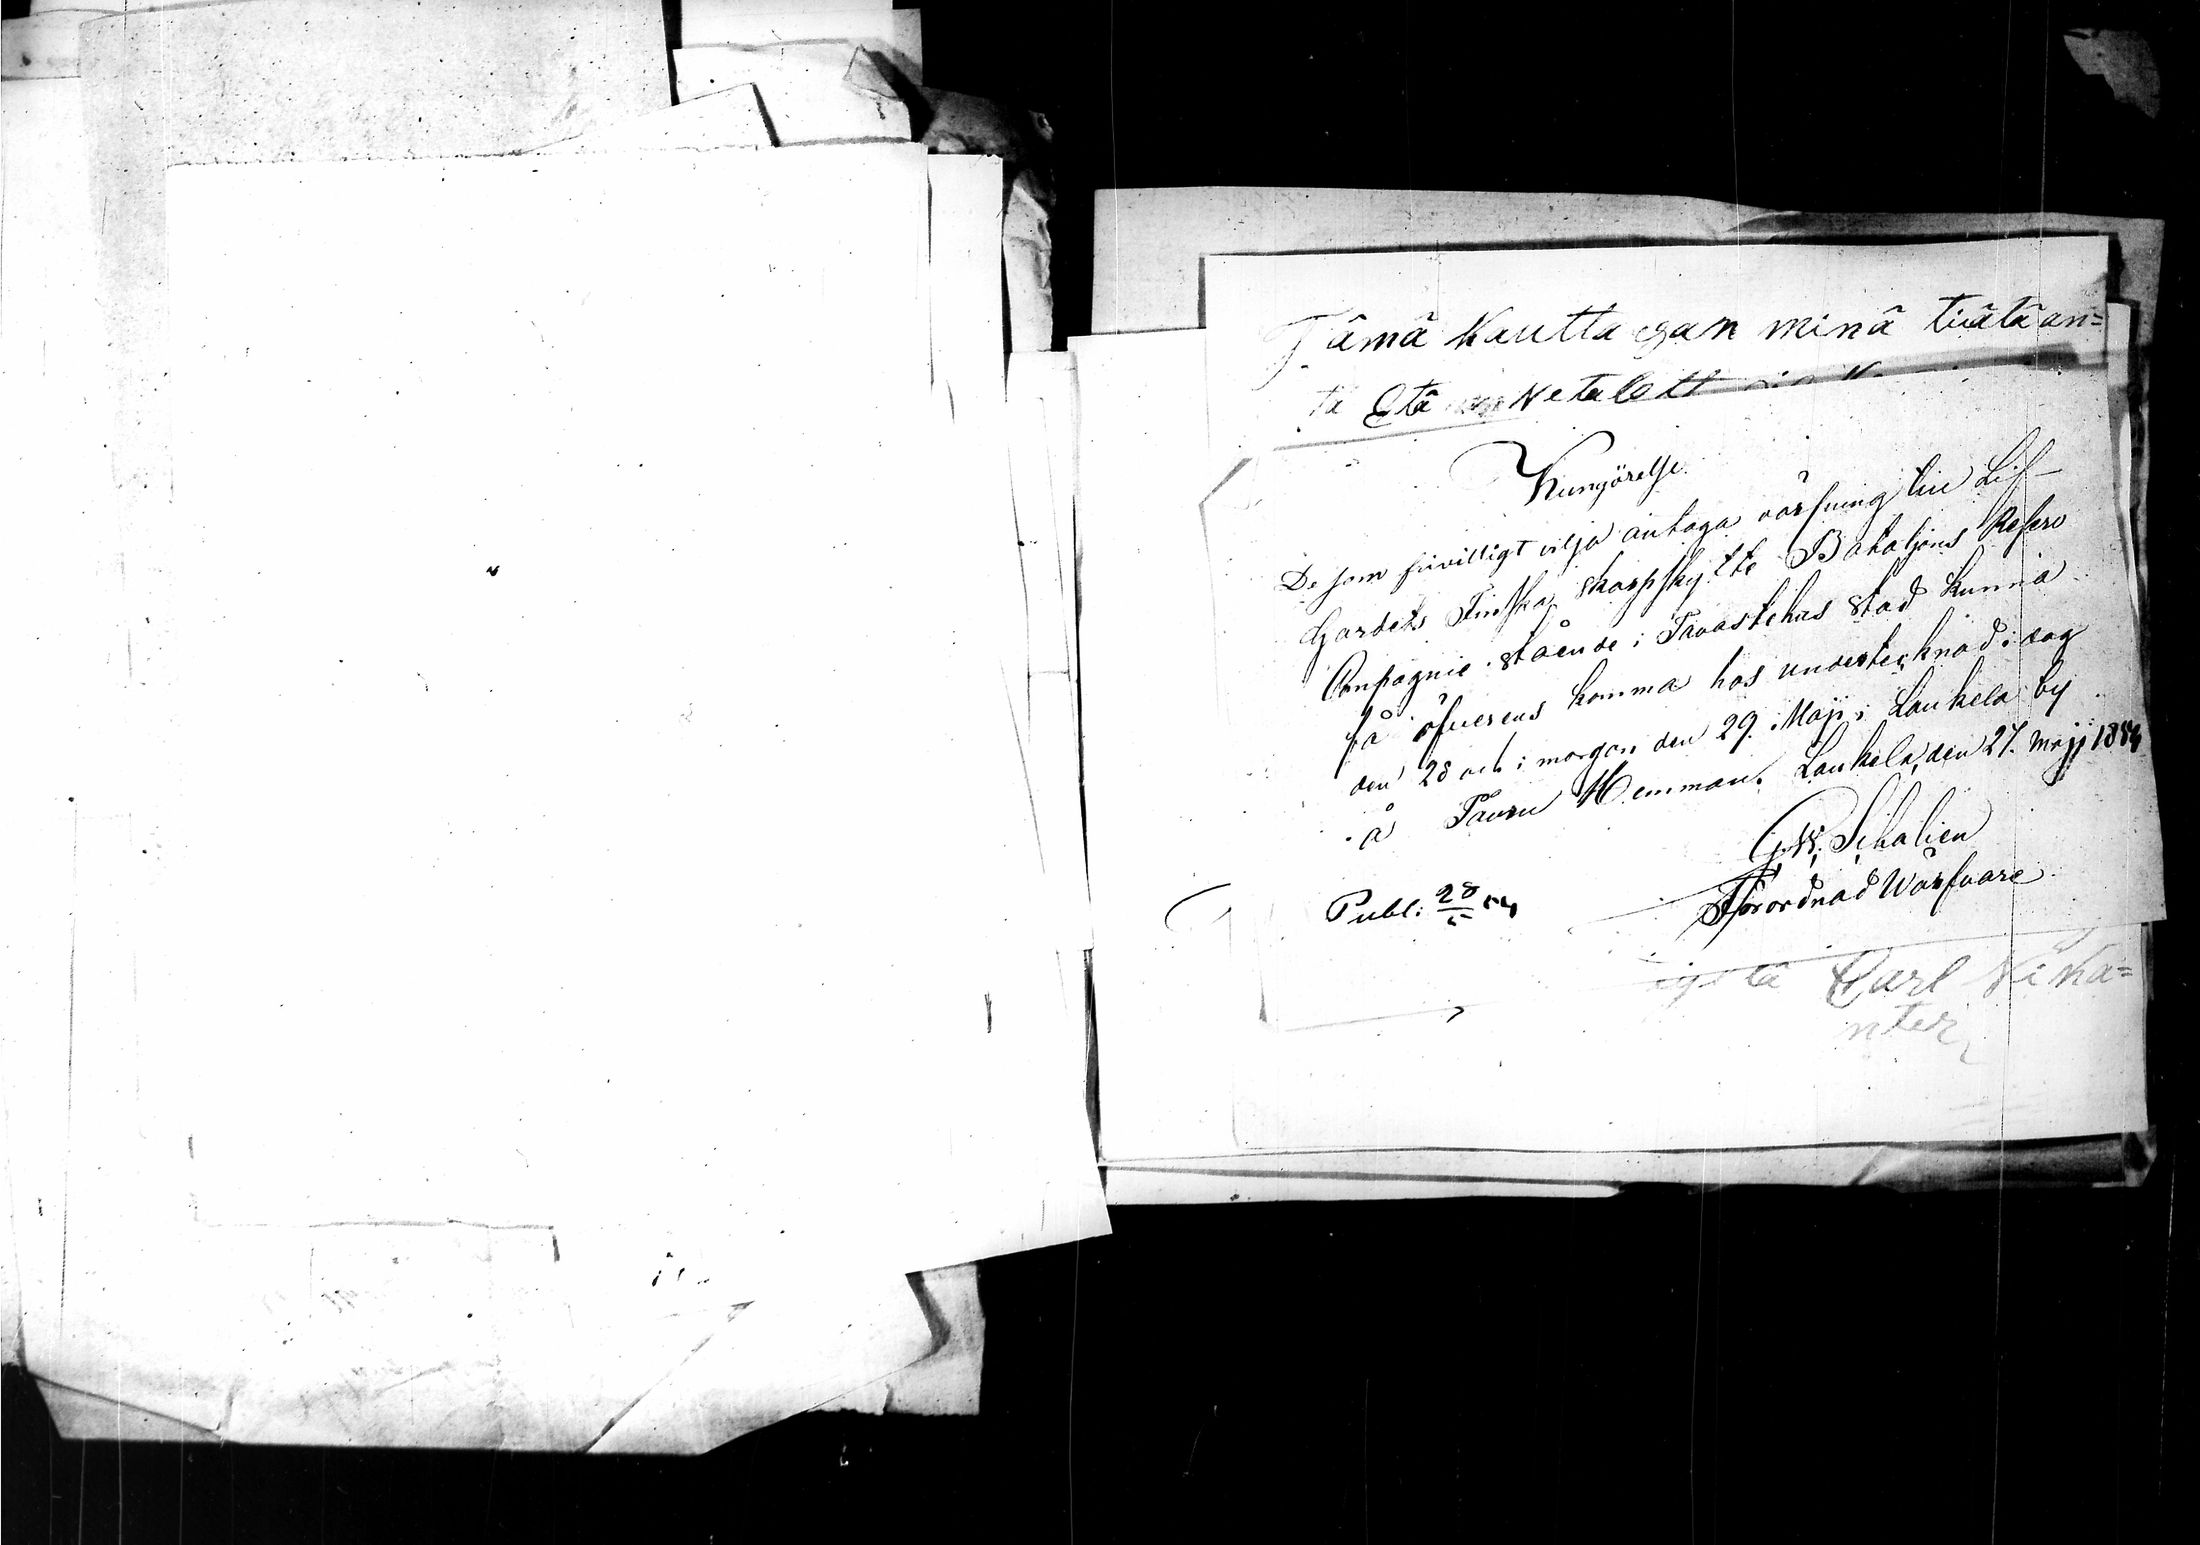 Tämä kautta saan minä tiätä an=
ta Etä Netalott
Kungörelse.
De som frivilligt vilja antaga värfning till Lif-
Gardets Finska Skarpskytte Bataljons Reserv
Compagnie stående i Tavastehus stad kunna
få öfverens komma hos undertecknad i dag
den 28 och i morgon den 29. Maji i Laukela by
å Tavru Hemman. Laukela, den 27. Maji 1854
G. W. Sihalien
Förordnad Wärfvare
Publ: 28/5 54
Carl Nika=
nter